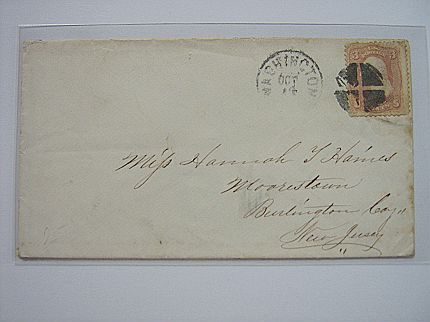 WASHINGTON
OCT
14
3 3
Miss Hannah T Haines
Moorestown
Burlington Coy"
New Jersey